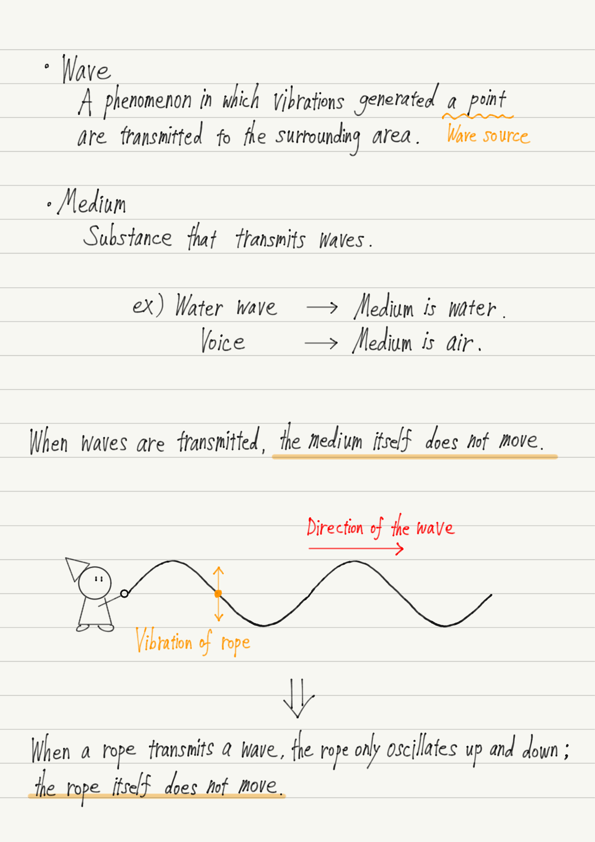 • Wave
A phenomenon in which vibrations generated a point
are transmitted to the surrounding area. Wave source
• Medium
Substance that transmits waves.
ex) Water wave → Medium is water.
Voice → Medium is air.
When waves are transmitted, the medium itself does not move.
Direction of the wave
Vibration of rope
When a rope transmits a wave, the rope only oscillates up and down;
the rope itself does not move.